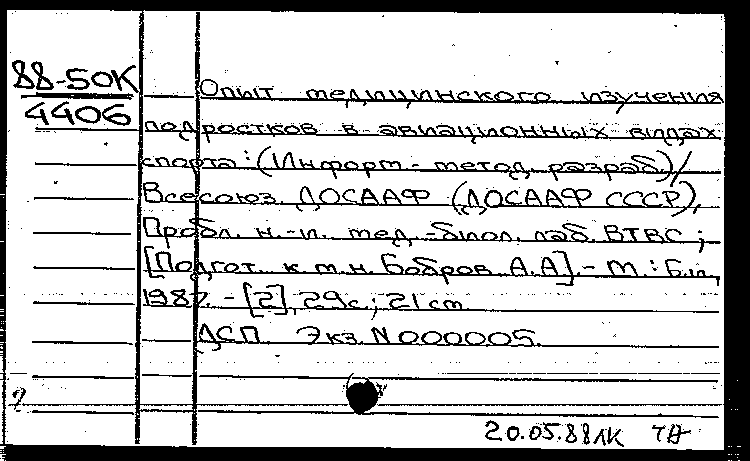 88-50К
4406
Опыт медицинского изучения
подростков в авиационных видах
спорта: (Информ.-метод. разраб)/
Всесоюз. ДОСААФ (ДОСААФ СССР),
Пробл. н.-и. мед.-биол. лаб. ВТВС;
[Подгот. к.м.н. Бобров А.А].- М.: Б.и.,
1987. - [2], 29с.; 21см.
ДСП. Экз. N000005.
2
20.05.88 ЛК